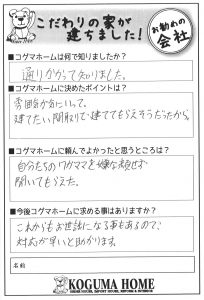 こだわりの家が
建ちました！
お勧めの
会社
■コグマホームは何で知りましたか？
通りがかって知りました。
■コグマホームに決めたポイントは？
雰囲気が良いして、
建てたい間取りで建ててもらえそうだったから。
■コグマホームに頼んでよかったと思うところは？
自分たちのワガママを嫌な顔せず
聞いてもらえた。
■今後コグマホームに求める事はありますか？
これからもお世話になる事もあるので、
対応が早いと助かります。
名前
KOGUMA HOME